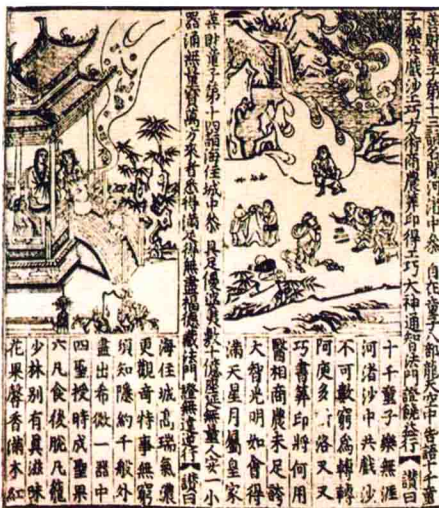 善財童子第十三詣名聞河渚中參 自在童子八部龍天空中告語十千童
子聚共戲沙工巧方術商農筭印得工巧大神通智法門證饒益行 讚曰
十千童子樂無涯
河渚沙中共戲沙
不可數窮為轉轉
阿庾多洛叉叉
巧書筭印將何用
醫相商農未足誇
大智光明如會得
滿天星月屬皇家
善財童子第十四詣海住城中參 具足優婆夷數十億座延無量人安一小
器涌無量寶方來者悉得滿足得無盡福德藏法門 證無違逆行 讚曰
海住城高瑞氣濃
更觀奇特事無窮
須知隱約千般外
盡出希微一器中
四聖授時成聖果
六凡食後脫凡籠
少林別有真滋味
花果馨香滿木紅